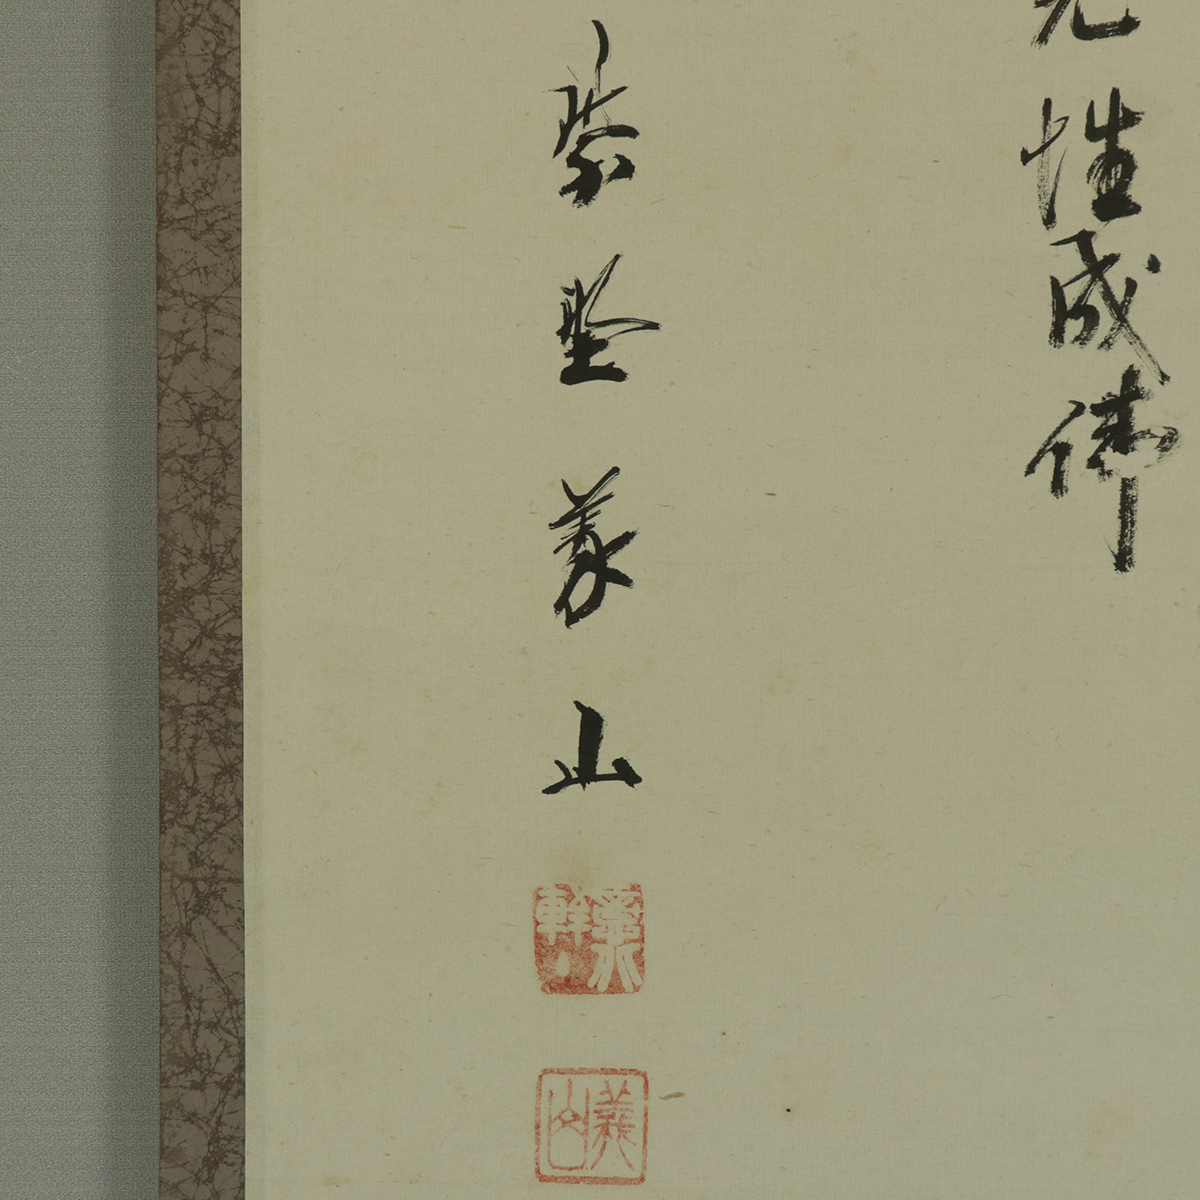 見性成佛
紫埜義山
軒
義山